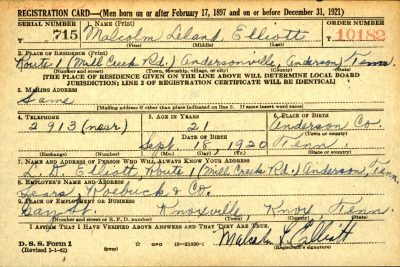 REGISTRATION CARD—(Men born on or after February 17, 1897 and on or before December 31, 1921)
SERIAL NUMBER 1. NAME (Print) ORDER NUMBER
T 715 Malcolm Leland Elliott T 10182
(First) (Middle) (Last)
2. PLACE OF RESIDENCE (Print)
Route 1 (Mill Creek Rd.) Andersonville, Anderson, Tenn.
(Number and street) (Town, township, village, or city) (County) (State)
[THE PLACE OF RESIDENCE GIVEN ON THE LINE ABOVE WILL DETERMINE LOCAL BOARD
JURISDICTION; LINE 2 OF REGISTRATION CERTIFICATE WILL BE IDENTICAL]
3. MAILING ADDRESS
Same
[Mailing address if other than place indicated on line 2. If same insert word same]
4. TELEPHONE 5. AGE IN YEARS 6. PLACE OF BIRTH
2913 (near) 21 Anderson Co.
DATE OF BIRTH (Town or county)
Sept. 18, 1920 Tenn.
(Exchange) (Number) (Mo.) (Day) (Yr.) (State or country)
7. NAME AND ADDRESS OF PERSON WHO WILL ALWAYS KNOW YOUR ADDRESS
L. D. Elliott, Route 1 (Mill Creek Rd.) Anderson, Tenn
8. EMPLOYER'S NAME AND ADDRESS
Sears, Roebuck & Co.
9. PLACE OF EMPLOYMENT OR BUSINESS
Gay St. Knoxville Knox, Tenn.
(Number and street or R. F. D. number) (Town) (County) (State)
I AFFIRM THAT I HAVE VERIFIED ABOVE ANSWERS AND THAT THEY ARE TRUE.
D. S. S. Form 1
(Revised 1-1-42) GPO 16-21630-1
Malcolm L. Elliott